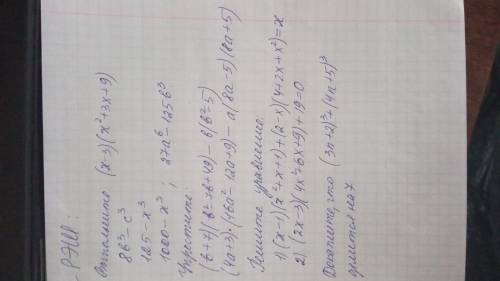 РЭШ:
Выполните (x-3)(x²+3x+9)
8b³-c³
125-x³
1000-x³ ; 27a⁶-125b³
Упростите:
(b+7)(b²-7b+49)-b(b²-5)
(4a+3)·(16a²-12a+9)-a(8a-5)(8a+5)
Решите уравнение:
1) (x-1)(x²+x+1)+(2-x)(4+2x+x²)=x
2) (2x-3)(4x²+6x+9)+19=0
Докажите, что (3n+2)³+(4n+5)³
делится на 7